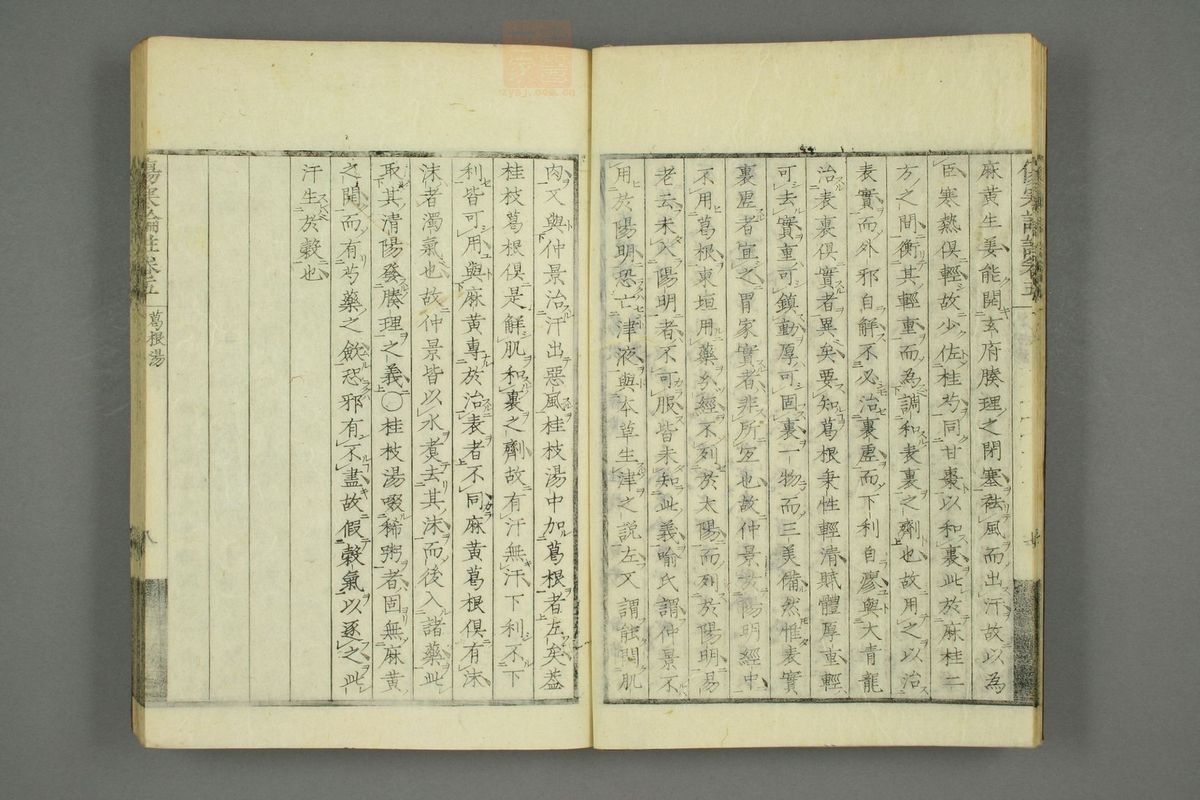 麻黄生姜能開玄府腠理之閉塞袪風而出汗故以為
臣寒熱俱輕故少佐桂芍同甘棗以和裏此於麻桂二
方之間衡其輕重而為調和表裏之劑也故用之以治
表實而外邪自解不必治裏虛而下利自瘳與大青龍
治表裏俱實者異矣要知葛根秉性輕清賦體厚重輕
可去實重可鎮動厚可固裏一物而三美備然惟表實
裏虛者宜之胃家實者非所宜也故仲景於陽明經中
不用葛根東垣用藥分經不列於太陽而列於陽明易
老云未入陽明者不可服皆未知此義喻氏謂仲景不
用於陽明恐亡津液與本草生津之説左又謂能開肌
肉又與仲景治汗出惡風桂枝湯中加葛根者左矣葢
桂枝葛根俱是解肌和裏之劑故有汗無汗下利不下
利皆可用與麻黄專於治表者不同麻黄葛根俱有沫
沫者濁氣也故仲景皆以水煮去其沫而後入諸藥此
取其清陽發腠理之義○桂枝湯啜稀粥者固無麻黄
之開而有芍藥之斂恐邪有不盡故假穀氣以逐之此
汗生於穀也
傷寒論註卷五
葛根湯
八